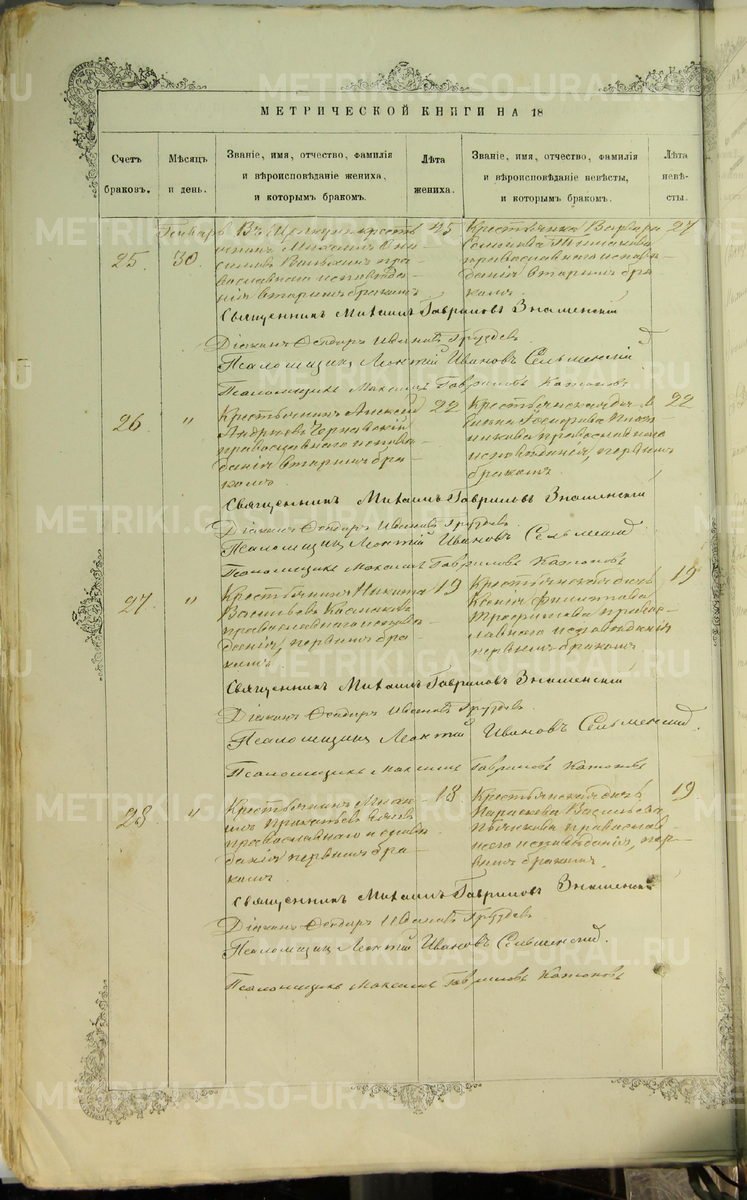 МЕТРИЧЕСКОЙ КНИГИ НА 18
Счетъ браковъ.
Мѣсяцъ и день.
Званіе, имя, отчество, фамилія и вѣроисповѣданіе жениха, и которымъ бракомъ.
Лѣта жениха.
Званіе, имя, отчество, фамилія и вѣроисповѣданіе невѣсты, и которымъ бракомъ.
Лѣта невѣ-
сты.
25.
Генварь
30
православнаго исповѣда-
нія вторымъ бракомъ
25
Крестьянка Варвара
православнаго исповѣ-
данія вторымъ бра-
комъ.
27
Священникъ Михаилъ Гавриловъ Знаменскій
Діаконъ Ѳеодоръ Ивановъ Груздевъ
Псаломщикъ Леонтій Ивановъ Сельменскій
Псаломщикъ Максимъ Гавриловъ Катаковъ
26
"
Крестьянинъ Алексѣй
Андреевъ
православнаго исповѣ-
данія вторымъ бра-
комъ.
22
Крестьянская дочь
православнаго
исповѣданія, первымъ
бракомъ.
22
Священникъ Михаилъ Гавриловъ Знаменскій
Діаконъ Ѳеодоръ Ивановъ Груздевъ.
Псаломщикъ Леонтій Ивановъ Сельменскій
Псаломщикъ Максимъ Гавриловъ Катаковъ
27
"
Крестьянинъ Никита
Васильевъ
православнаго исповѣ-
данія, первымъ бра-
комъ.
19
Крестьянская дочь
Ксенія
правос-
лавнаго исповѣданія
первымъ бракомъ
19
Священникъ Михаилъ Гавриловъ Знаменскій
Діаконъ Ѳеодоръ Ивановъ Груздевъ.
Псаломщикъ Леонтій Ивановъ Сельменскій.
Псаломщикъ Максимъ Гавриловъ Катаковъ
28
"
Крестьянинъ
православнаго исповѣ-
данія первымъ бра-
комъ
18
Крестьянская дочь
Параскева Васильева
православ-
наго исповѣданія, пер-
вымъ бракомъ.
19
Священникъ Михаилъ Гавриловъ Знаменскій
Діаконъ Ѳеодоръ Ивановъ Груздевъ
Псаломщикъ Леонтій Ивановъ Сельменскій.
Псаломщикъ Максимъ Гавриловъ Катаковъ
METRIKI.GASO-URAL.RU